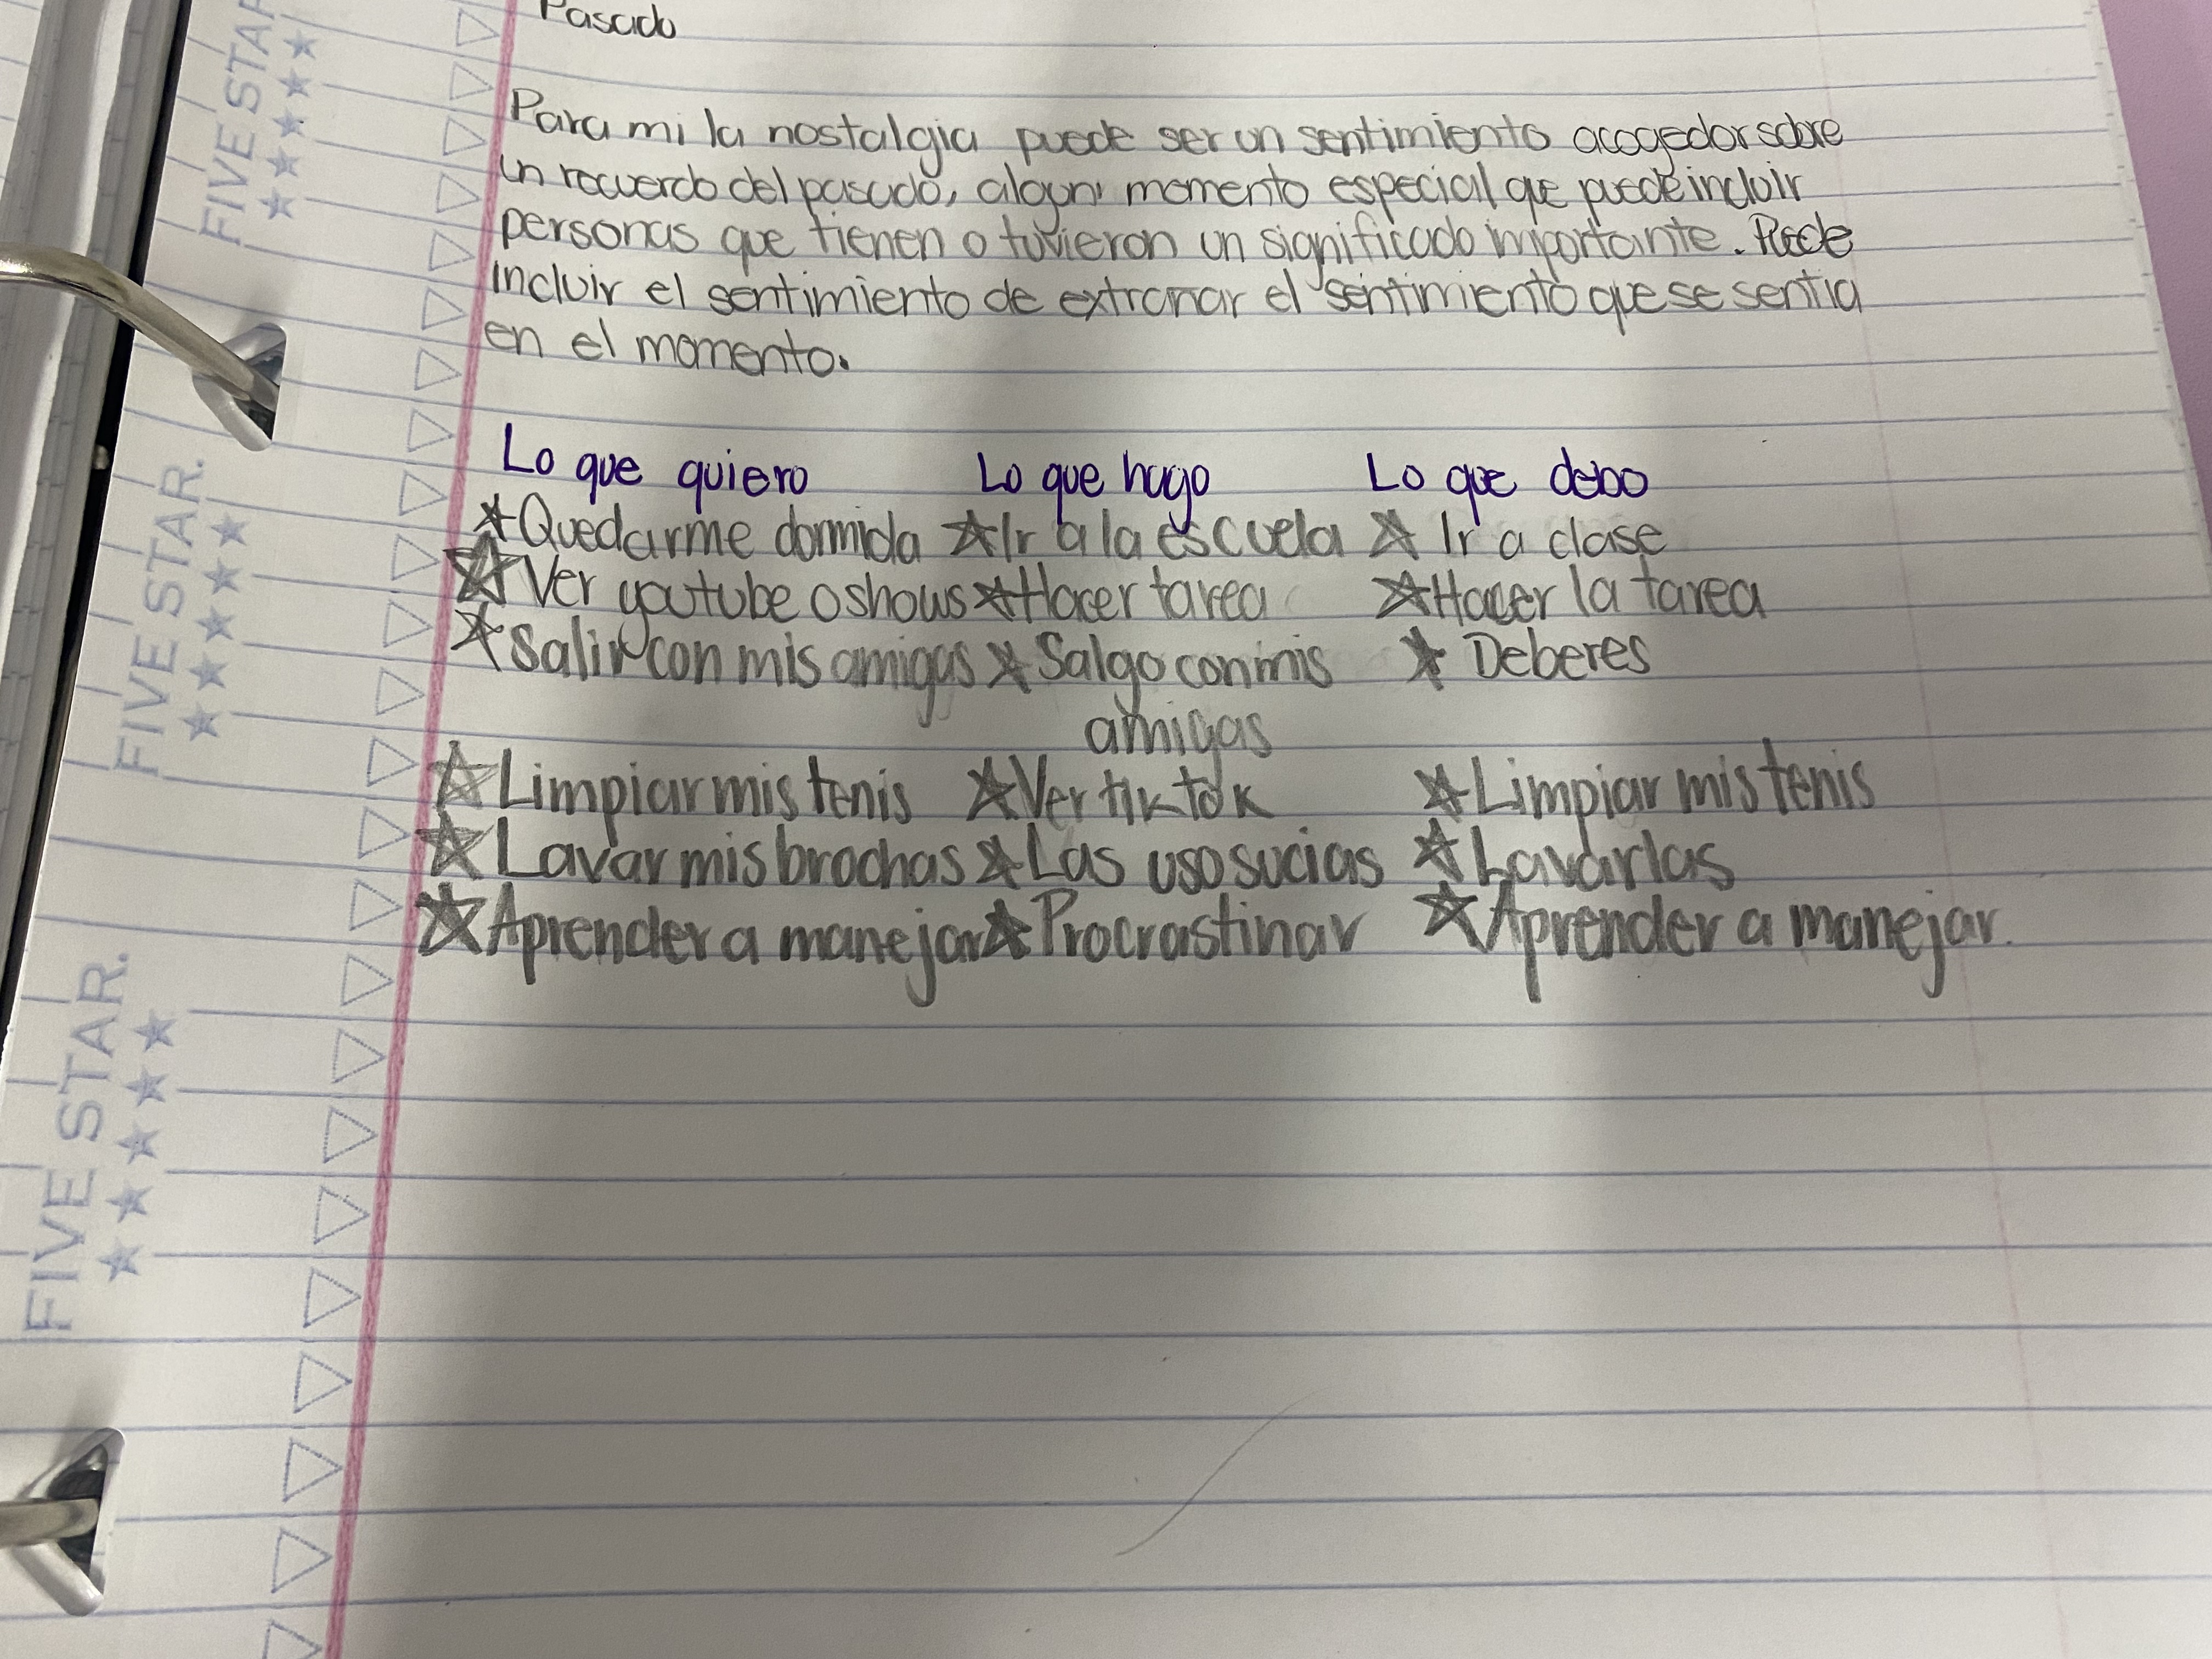 Pasado
Para mi la nostalgia puede ser un sentimiento acogedor sobre
un recuerdo del pasado, algun momento especial que puede incluir
personas que tienen o tuvieron un significado importante. Puede
incluir el sentimiento de extranar el sentimiento que se sentia
en el momento.
Lo que quiero Lo que hago Lo que debo
★Quedarme dormida ★Ir a la escuela ★ Ir a clase
★Ver youtube o shows ★Hacer tarea ★Hacer la tarea
★Salir con mis amigas ★ Salgo con mis ★ Deberes
amigas
★Limpiar mis tenis ★Ver tik tok ★Limpiar mis tenis
★Lavar mis brochas ★Las uso sucias ★Lavarlas
★Aprender a manejar ★Procrastinar ★Aprender a manejar.
FIVE STAR
★★★★
FIVE STAR.
★★★★
FIVE STAR.
★★★★